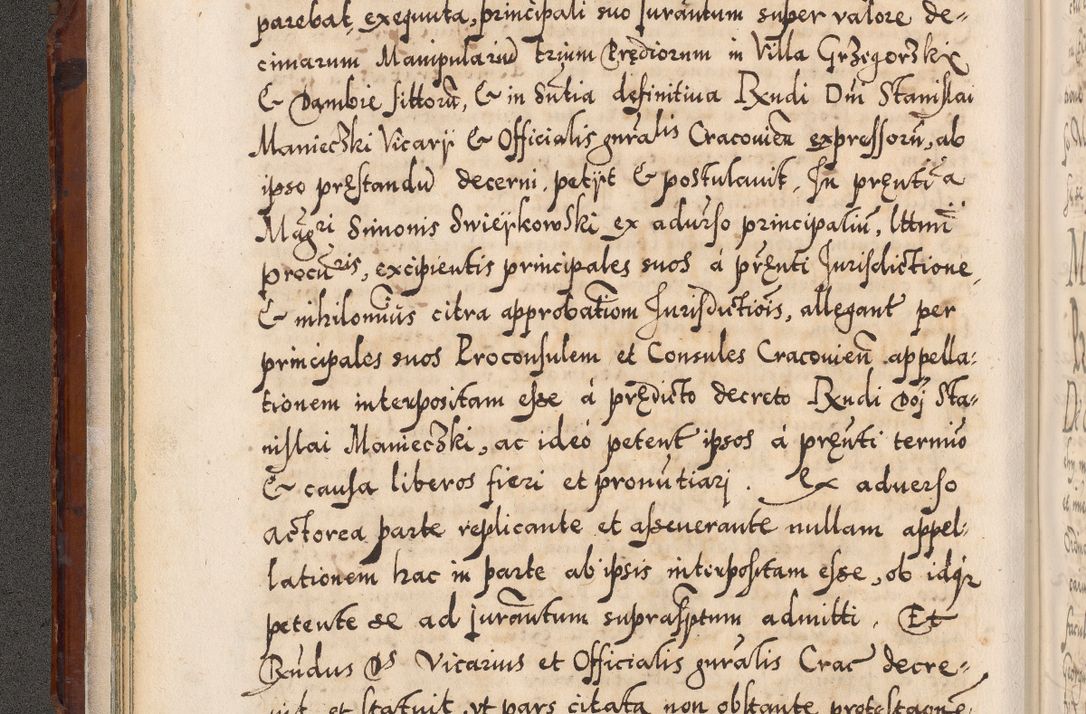 parebat, exequuta, principali suo Jurāntum super valore de=
cimarum Manipulariū trium Prędiorum in Villa Grzegorzkix
& Dambie sittorū, & in Sn̄tia definitiua Rxndi Dn̄i Stanislai
Manieczki Vicarÿ & Officialis gnrālis Cracouien̄ expressorū, ab
ipso pręstandū decerni, petÿt & postulauit. In pręnti a
Māgri Simonis Swieÿkowski, ex aduērso principaliū, lttmī
procūris, excipientis principales suos á pręnti Jurisdictione,
& nihilomīus citra approbatiom̄ Jurisdictiōis, allegant per
principales suos Proconsulem et Consules Cracouien̄ appella:
tionem interpositam esse á prędicto decreto Rxndi Dn̄j Sta=
nislai Manieczki, ac ideó petent ipsos á pręnti termīo
& causa liberos fieri et pronūtiarj. Ex aduerso
actorea parte replicante et asseuerante nullam appel:
lationem hac in parte ab ipsis interpositam esse, ob idq̃e
petente se ad jurāntum suprasp̄tum admitti. Et
Rxn̄dus Ds Vicarius et Officialis gnrālis Crac̄ decre=
uit et statuit, vt pars citata non obstante protestaōne